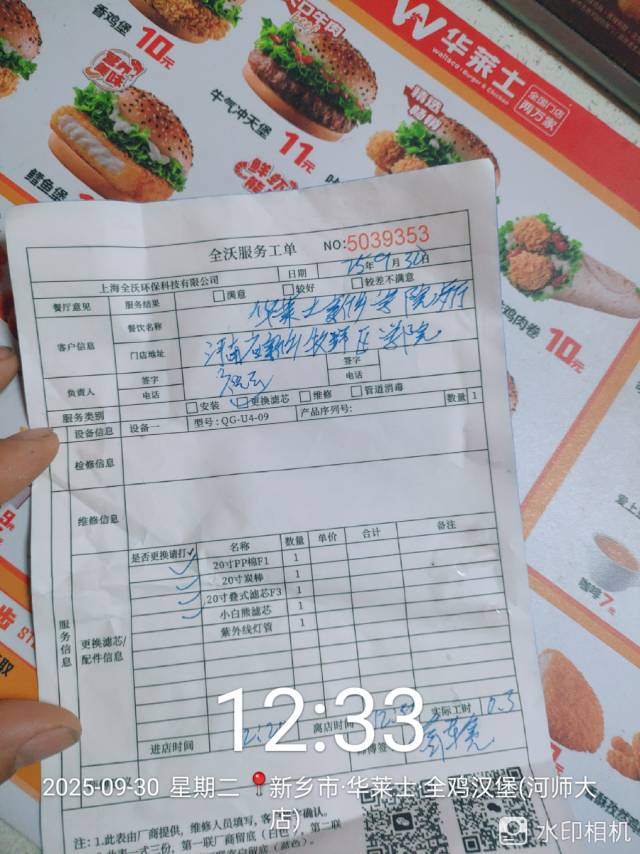 香鸡堡
10元
牛肉
牛气冲天堡
11元
华莱士
Wallace · Burger & Chicken
全国门店
两万家
鳕鱼堡
鸡肉卷
10元
咖啡 7元
全沃服务工单 NO:5039353
上海全沃环保科技有限公司 日期 25年9月30日
餐厅意见 服务结果 □满意 □较好 □较差不满意
客户信息 餐饮名称 华莱士新乡
门店地址 河南省新乡牧野区
负责人 签字 签字
电话 电话
服务类别 □安装 □更换滤芯 □维修 □管道消毒
设备信息 设备一 型号: QG-U4-09 产品序列号: 数量 1
检修信息
维修信息
服务信息 更换滤芯/配件信息
是否更换请打✓ 名称 数量 单价 合计 备注
✓ 20寸PP棉F1 1
✓ 20寸炭棒 1
✓ 20寸叠式滤芯F3 1
✓ 小白熊滤芯 1
紫外线灯管 1
进店时间 离店时间 实际工时 0.3
12:33
2025-09-30 星期二 新乡市·华莱士·全鸡汉堡(河师大店)
注: 1.此表由厂商提供, 维修人员填写, 客户确认。
2.此表一式三份, 第一联厂商留底(白色), 第二联
客户留底(蓝色)。
水印相机